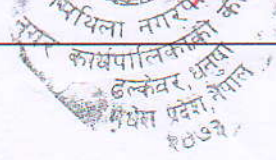 मिथिला नगरप
नगर कार्यपालिकाको का
ढल्केवर, धनुषा
मधेश प्रदेश, नेपाल
२०७३